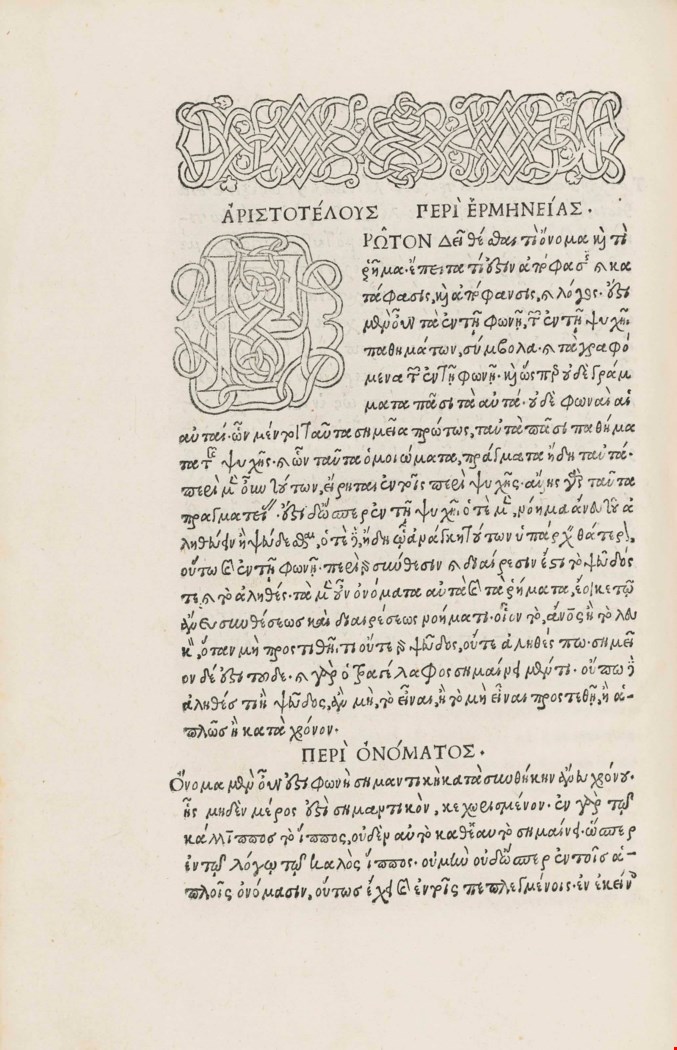 ἈΡΙΣΤΟΤΈΛΟΥΣ ΠΕΡῚ ἙΡΜΗΝΕΊΑΣ.
ΠΡΩ͂ΤΟΝ Δεῖ θέσθαι τί ὄνομα καὶ τί
ῥῆμα. ἔπειτα τί ἐστιν ἀπόφασις καὶ κα
τάφασις, καὶ ἀπόφανσις, καὶ λόγος. ἔστι
μὲν οὖν τὰ ἐν τῇ φωνῇ, τῶν ἐν τῇ ψυχῇ
παθημάτων, σύμβολα. καὶ τὰ γραφό
μενα τῶν ἐν τῇ φωνῇ. καὶ ὥσπερ οὐδὲ γράμ
ματα πᾶσι τὰ αὐτά. οὐδὲ φωναὶ αἱ
αὐταί. ὧν μέντοι ταῦτα σημεῖα πρώτως, ταὐτὰ πᾶσι παθήμα
τα τῆς ψυχῆς. καὶ ὧν ταῦτα ὁμοιώματα, πράγματα ἤδη ταὐτά.
περὶ μὲν οὖν τούτων, εἴρηται ἐν τοῖς περὶ ψυχῆς. ἄλλης γὰρ ταῦτα
πραγματείας. ἔστι δὲ ὥσπερ ἐν τῇ ψυχῇ ὁτὲ μὲν, νόημα ἄνευ τοῦ ἀ
ληθεύειν ἢ ψεύδεσθαι, ὁτὲ δὲ, ἤδη ᾧ ἀνάγκη τούτων ὑπάρχειν θάτερον,
οὕτω καὶ ἐν τῇ φωνῇ. περὶ γὰρ σύνθεσιν καὶ διαίρεσιν ἐστὶ τὸ ψεῦδός
τε καὶ τὸ ἀληθές. τὰ μὲν οὖν ὀνόματα αὐτὰ καὶ τὰ ῥήματα, ἔοικε τῷ
ἄνευ συνθέσεως καὶ διαιρέσεως νοήματι. οἷον τὸ, ἄνθρωπος ἢ τὸ λευ
κὸν, ὅταν μὴ προστιθῇ τι οὔτε γὰρ ψεῦδος, οὔτε ἀληθές πω. σημεῖ
ον δέ ἐστι τοῦδε. καὶ γὰρ ὁ τραγέλαφος σημαίνει μέν τι. οὔπω δὲ
ἀληθές τι ἢ ψεῦδος, ἐὰν μὴ, τὸ εἶναι, ἢ τὸ μὴ εἶναι προστεθῇ, ἢ ἁ-
πλῶς ἢ κατὰ χρόνον.
ΠΕΡῚ ὈΝΌΜΑΤΟΣ.
Ὄνομα μὲν οὖν ἐστι φωνὴ σημαντικὴ κατὰ συνθήκην ἄνευ χρόνου.
ἧς μηδὲν μέρος ἐστὶ σημαντικὸν, κεχωρισμένον. ἐν γὰρ τῷ
κάλλιππος τὸ ἵππος, οὐδὲν αὐτὸ καθ' ἑαυτὸ σημαίνει. ὥσπερ
ἐν τῷ λόγῳ τῷ καλὸς ἵππος. οὐ μὴν οὐδ' ὥσπερ ἐν τοῖς ἁ-
πλοῖς ὀνόμασιν, οὕτως ἔχει καὶ ἐν τοῖς πεπλεγμένοις. ἐν ἐκείνοις